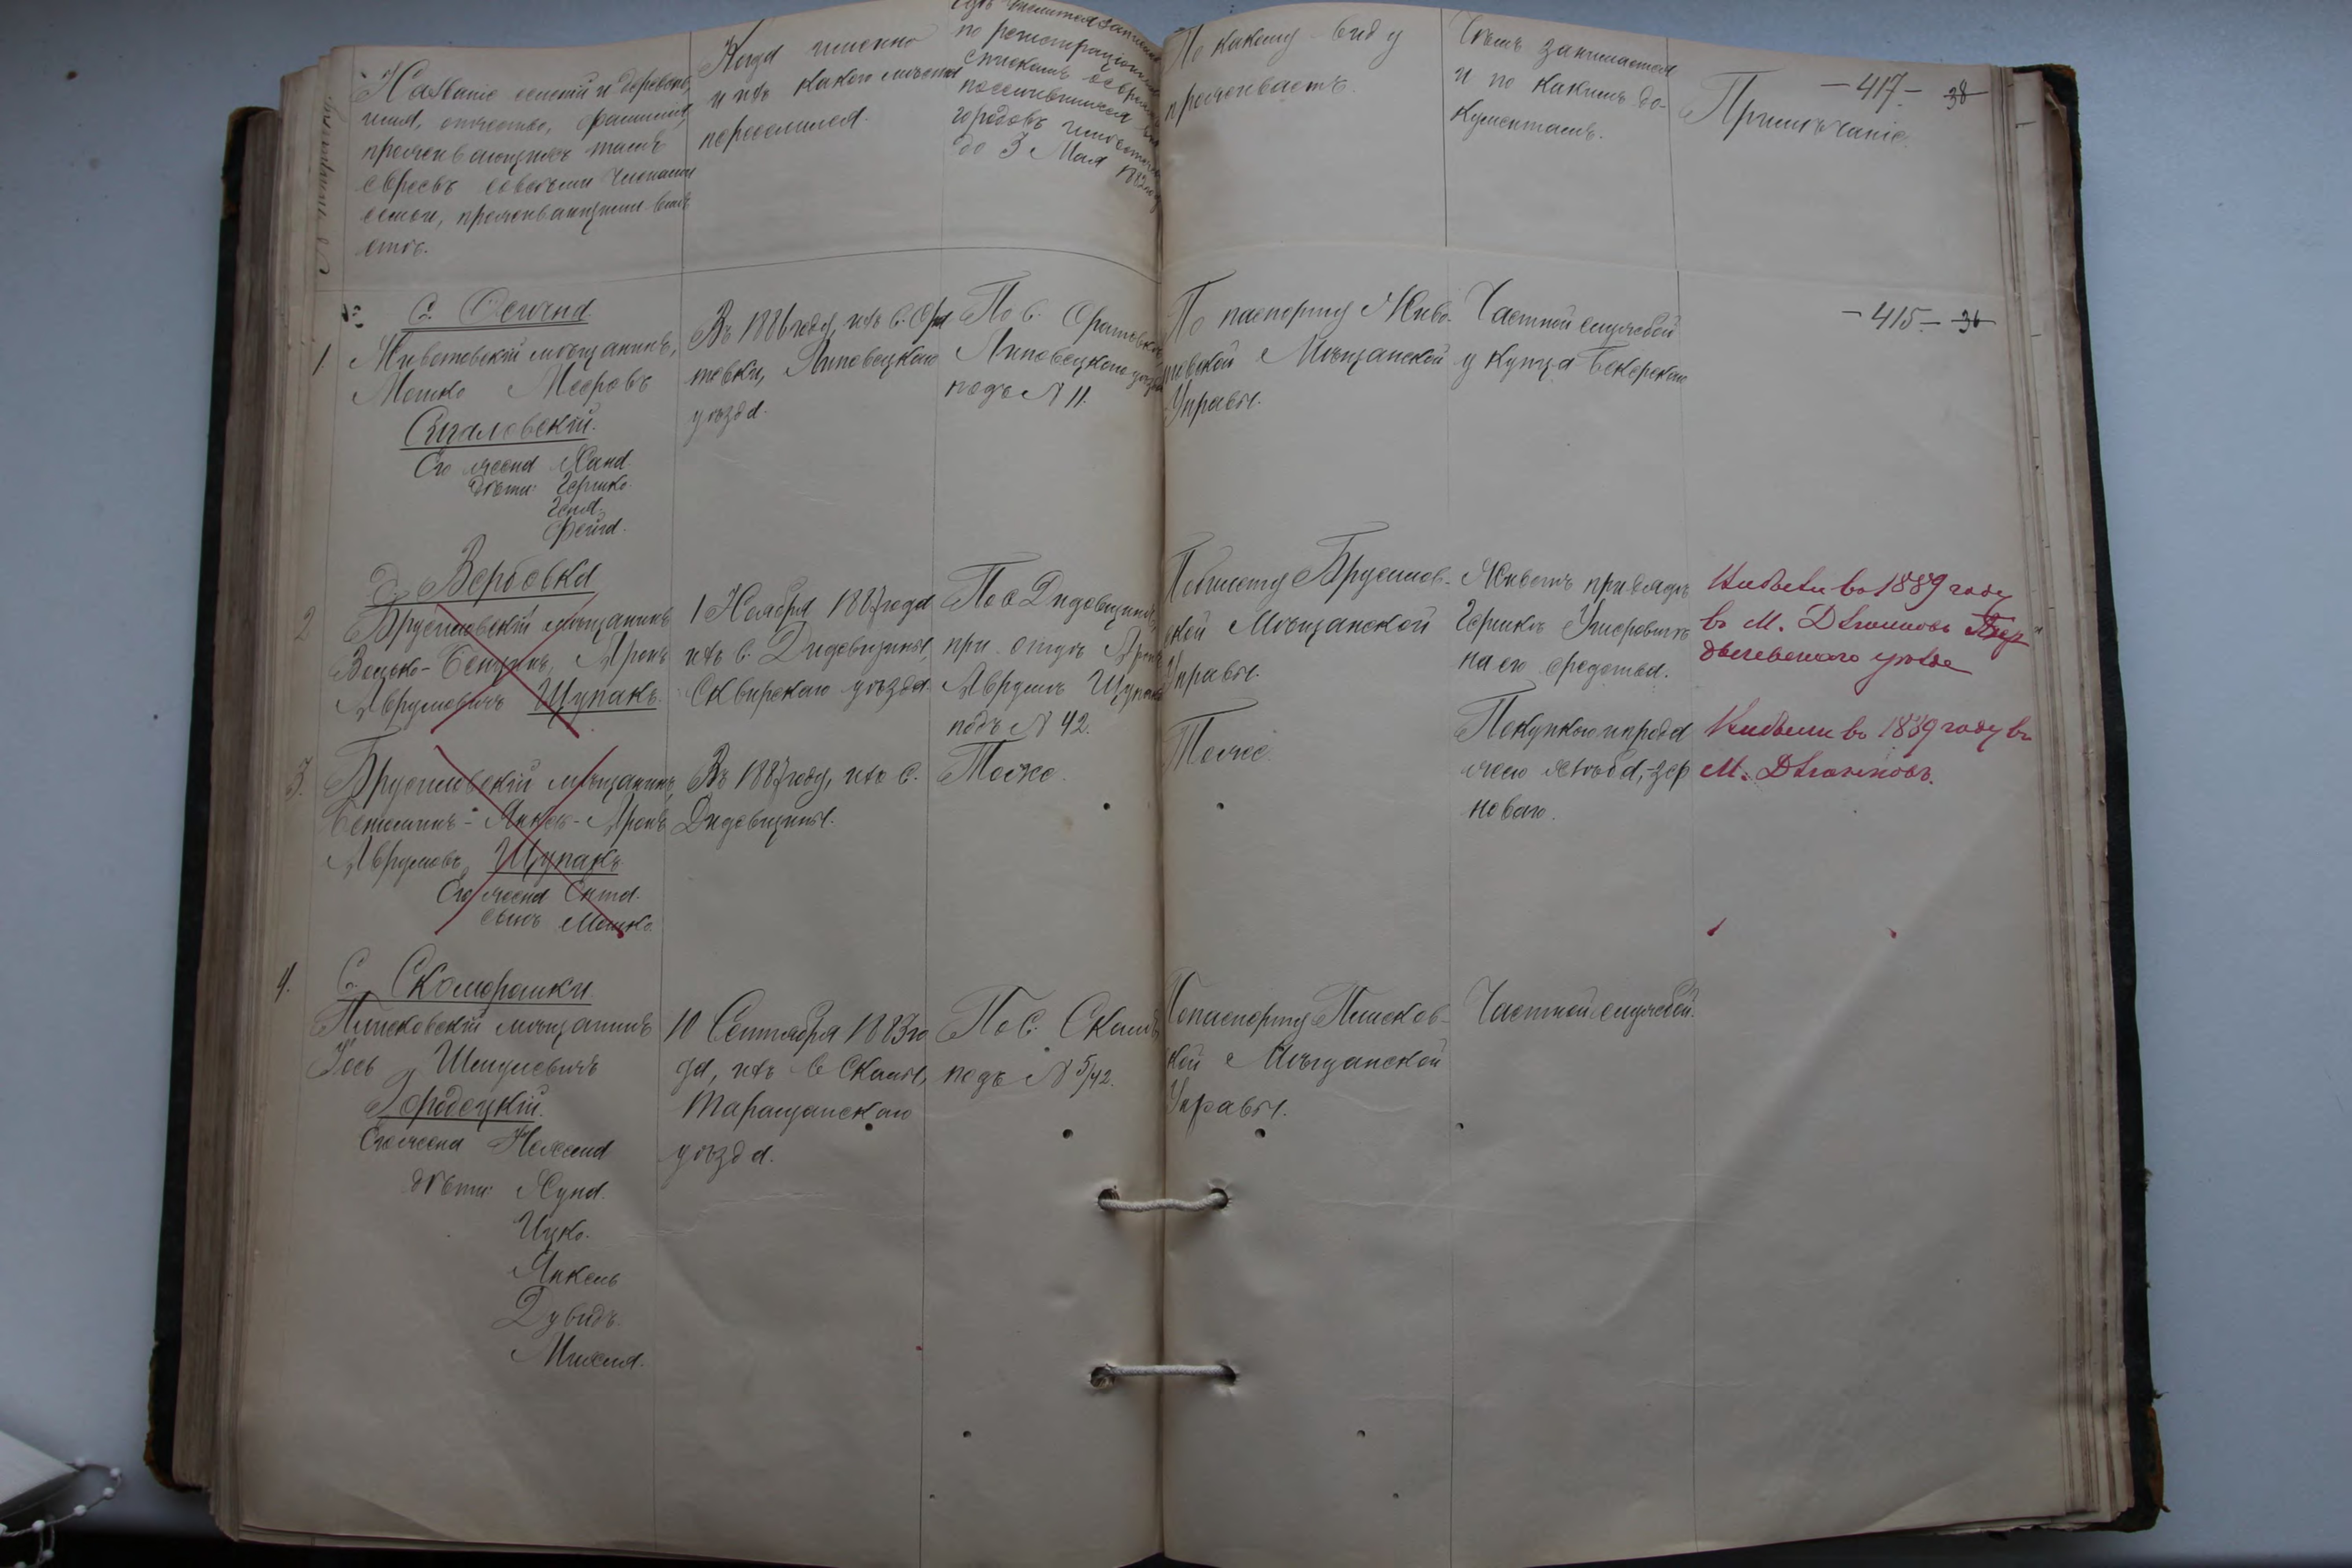 Названіе селеній и деревень,
имя, отчество, фамилія,
проживающихъ тамъ
евреевъ со всѣми членами
семьи, проживающими вмѣ-
стѣ.
Когда именно
и изъ какого мѣста
переселился.
по регистраціон
спискамъ
поселившихся
городовъ
до 3 Мая 1882 года
По какому виду
проживаетъ.
Чѣмъ занимается
и по какимъ до-
кументамъ.
Примѣчаніе.
-417- 38
С. Осична.
1. Животовскій мѣщанинъ,
Мошко Мееровъ
Сигаловскій.
Его жена Хана.
дѣти: Гершко.
Геня.
Фейга.
Въ 1886 году, изъ с. Ора
товки, Липовецкаго
уѣзда.
По с. Оратовкѣ
Липовецкаго уѣзда
подъ № 11.
По паспорту Живо-
товской Мѣщанской
Управы.
Частной службой
у купца Бекерскаго
-415- 36
д. Вербовка
2 Брусиловскій мѣщанинъ
Аронъ
Аврумовичъ Щупакъ.
1 Ноября 1887 года
изъ с. Дидовщины,
Сквирскаго уѣзда.
По с. Дидовщинѣ,
при отцѣ Аронѣ
Аврумѣ Щупакѣ
подъ № 42.
По билету Брусилов-
ской Мѣщанской
Управы.
Живетъ при дядѣ
Гершкѣ
на его средства.
Выбылъ въ 1889 году
въ м. Дзюньковъ Бер
дичевскаго уѣзда
3. Брусиловскій мѣщанинъ,
Беньминъ-Янкель-Аронъ
Аврумовъ Щупакъ.
Его жена Сита.
сынъ Мошко.
Въ 1887 году, изъ с.
Дидовщины.
Тоже.
Тоже.
Покупкою и прода
жею хлѣба, зер
новаго.
Выбыли въ 1889 году въ
м. Дзюньковъ.
4. С. Скоморошки.
Пятигорскій мѣщанинъ
Іось Шмулевичъ
Городецкій.
Его жена Нехама
дѣти: Хуна.
Ицко.
Янкель
Дувидъ.
10 Сентября 1883 го
да, изъ с. Скалы,
Таращанскаго
уѣзда.
По с. Скалѣ
подъ № 5/42.
По паспорту
кой Мѣщанской
Управы.
Частной службой.